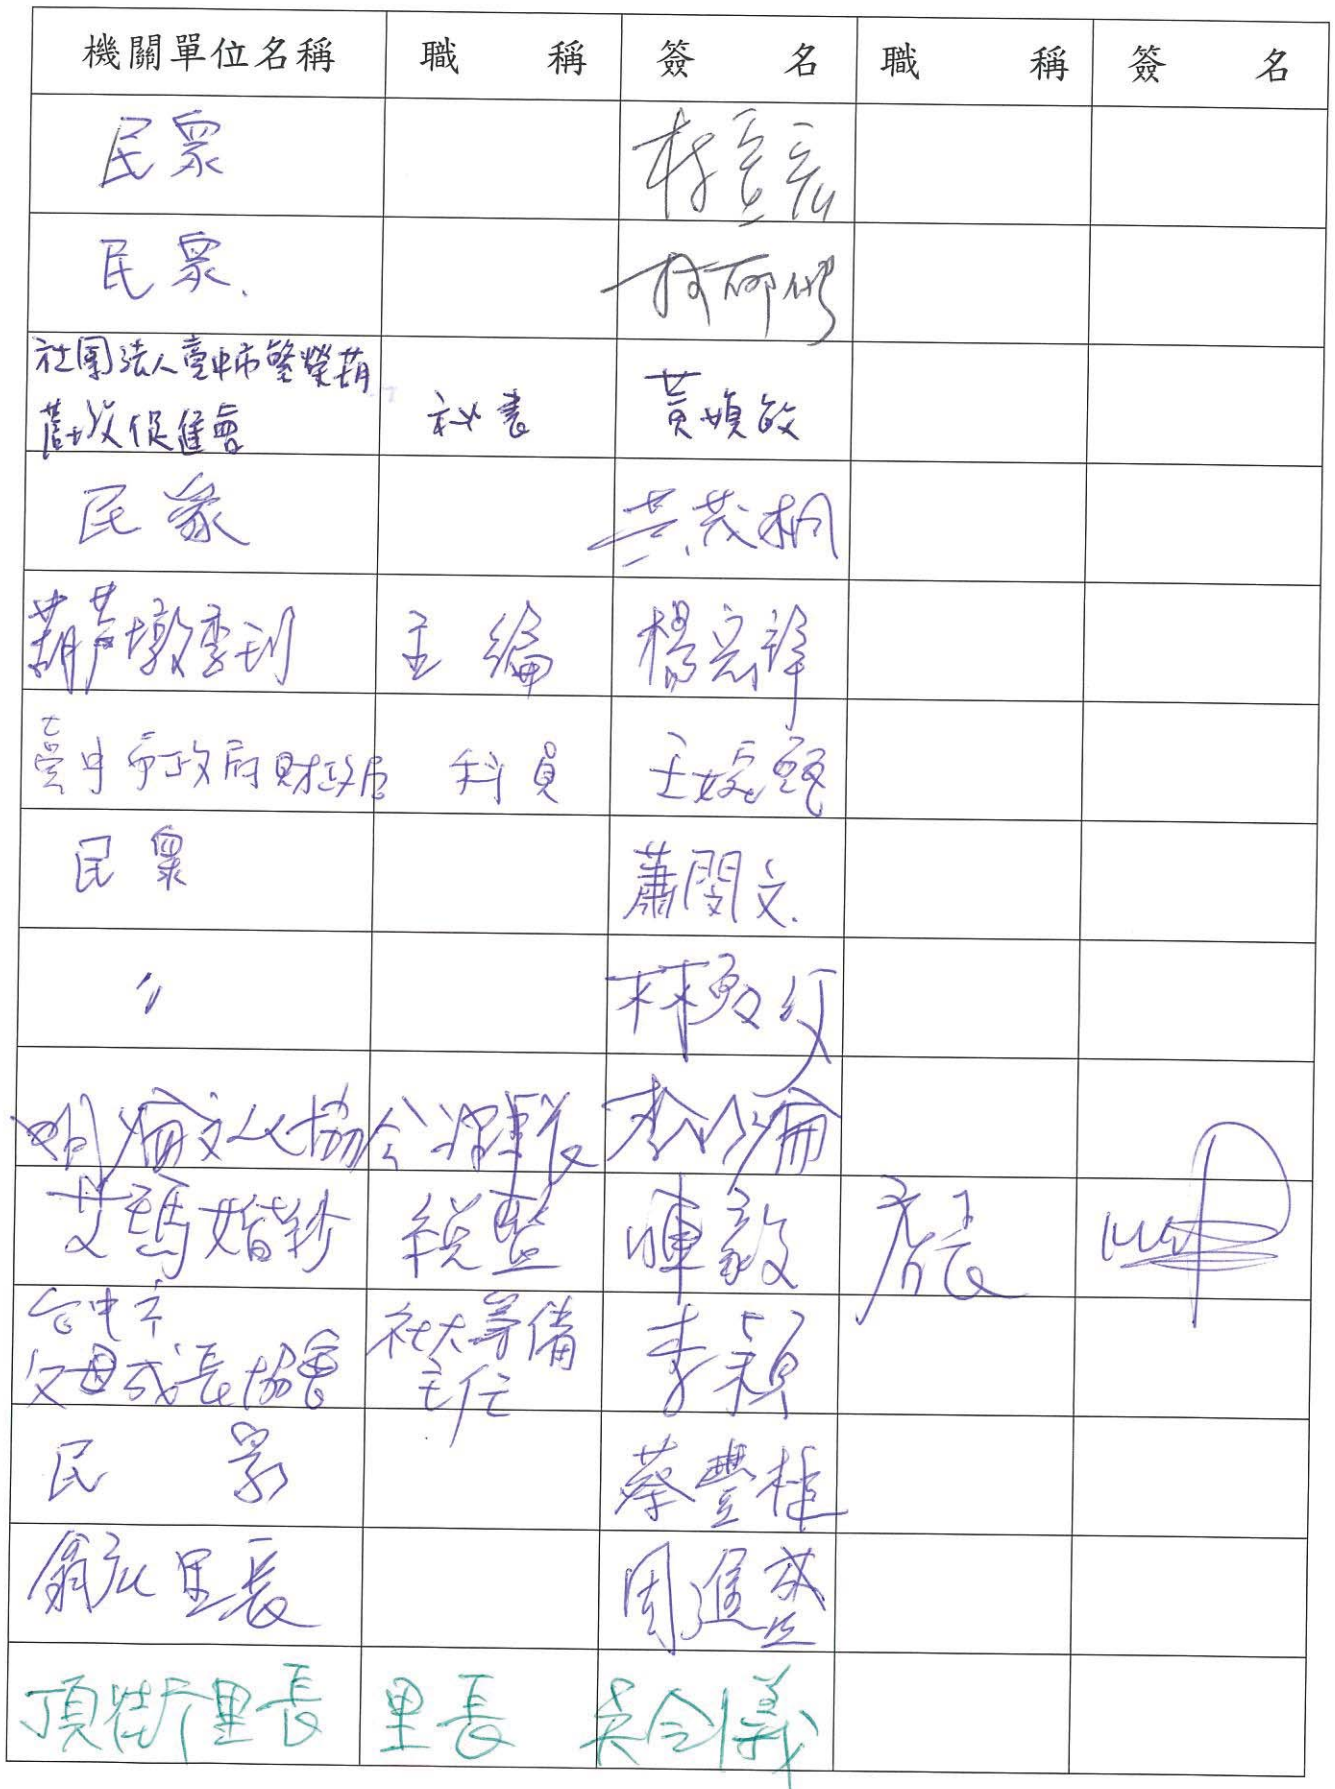 機關單位名稱 職稱 簽名 職稱 簽名
民眾
民眾
社團法人臺中市繁榮葫
蘆墩促進會 秘書 黃媜敏
民眾 黃茂桐
葫蘆墩季刊 主編 楊宗祥
臺中市政府財政局 科員 王婉甄
民眾 蕭閔文
〃
文化協會 理事長
艾瑪婚紗 店長
台中市
父母成長協會 社大籌備
主任 李穎
民眾 蔡豐桂
翁社里長 周進益
頂街里長 里長 吳令儀